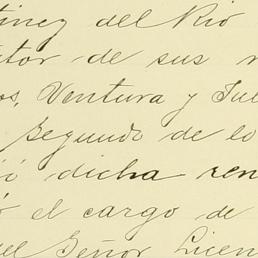 tinez del Rio
utor de sus
os, Ventura y Jul
Segundo de lo
ió dicha ren
ó el cargo de
del Señor Licen